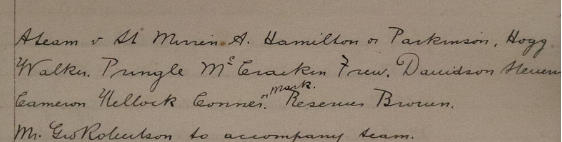 A team v St Mirren A. Hamilton or Parkinson, Hogg
Walker. Pringle McCracken Frew. Davidson Steven
Cameron Kellock Conner or Mark. Reserves Brown.
Mr. Geo Robertson to accompany team.